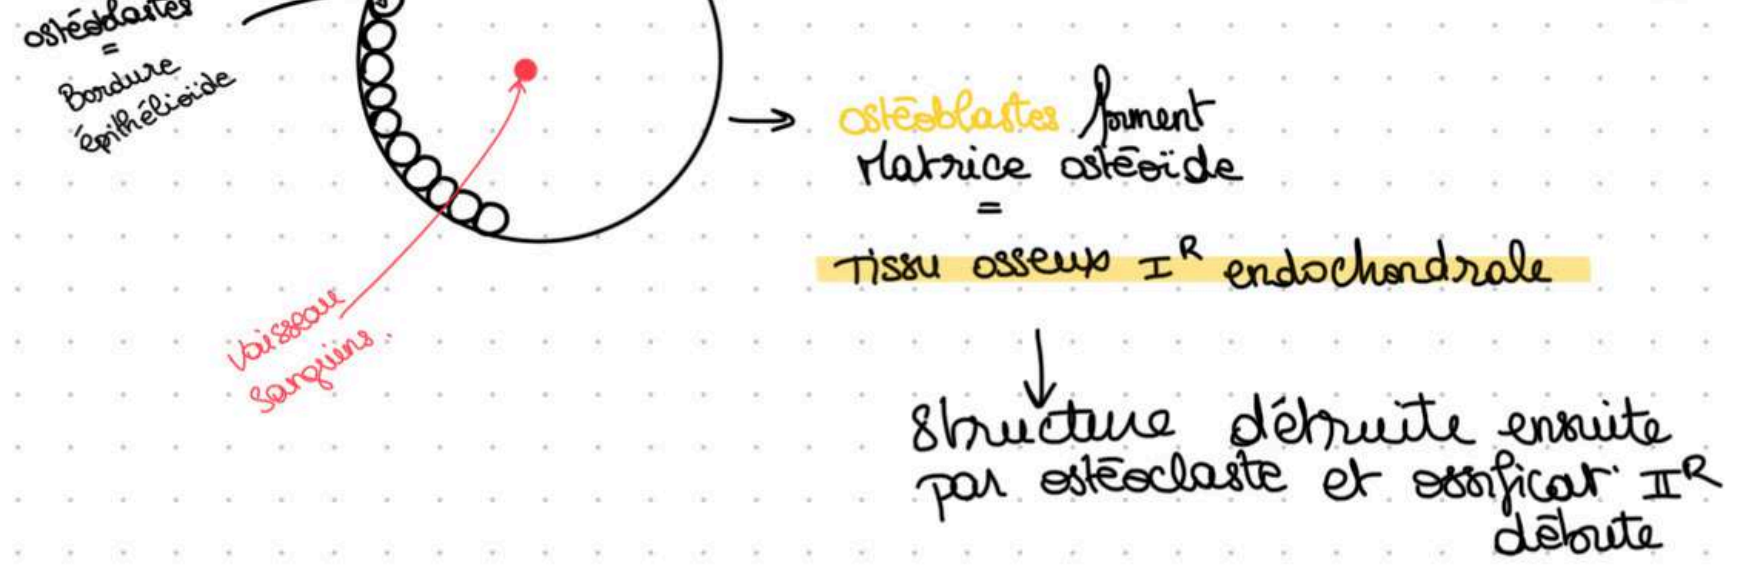 ostéoblastes
=
Bordure
épithélioïde
Vaisseau
Sanguins.
→ ostéoblastes forment
Matrice ostéoïde
=
Tissu osseux Iᴿ endochondrale
↓
Structure détruite ensuite
par ostéoclaste et ossificat° IIᴿ
débute